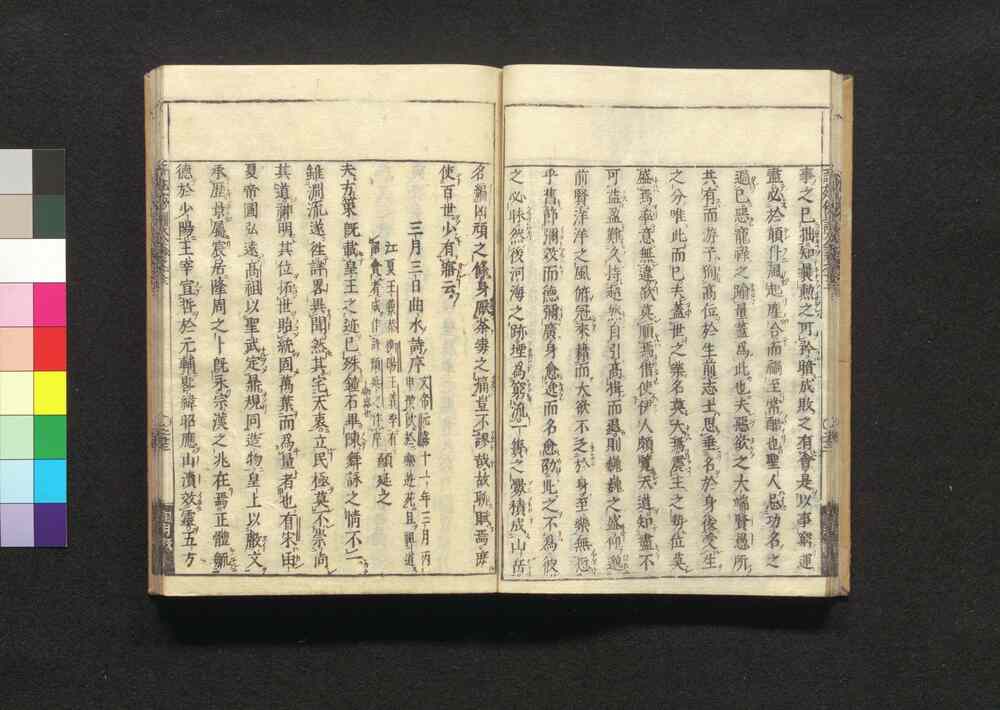 事之已拙知曩勲之可矜暗成敗之有會是以事窮運
盡必於顛仆風起塵合而禍至常酷也聖人忌功名之
過已惡寵祿之踰量蓋爲此也夫惡欲之大端賢愚所
共有而游子殉高位於生前志士思垂名於身後受生
之分唯此而已夫蓋世之業名莫大焉震主之勢位莫
盛焉率意無違欲莫順焉借使伊人頗覽天道知盡不
可益盈難久持超然自引高揖而退則巍巍之盛仰邈
前賢洋洋之風俯冠來籍而大欲不乏於身至樂無愆
乎舊節彌效而德彌廣身愈逸而名愈劭此之不爲彼
之必昧然後河海之跡堙爲窮流一簣之釁積成山岳
名編凶頑之條身厭荼毒之痛豈不謬哉故聊賦焉庶
使百世少有寤云
三月三日曲水詩序
文帝元嘉十一年三月丙
申禊飲於樂遊苑且祖道
江夏王義恭衡陽王義季有
詔會者咸作詩詔延之作序
顔延之
夫方策既載皇王之迹已殊鍾石畢陳舞詠之情不一
雖淵流遂往詳畧異聞然其宅天衷立民極莫不崇尚
其道神明其位拓世貽統固萬葉而爲量者也有宋函
夏帝圖弘遠高祖以聖武定鼎規同造物皇上以叡文
承歷景屬宸居隆周之卜既永宗漢之兆在焉正體毓
德於少陽王宰宣哲於元輔晷緯昭應山瀆效靈五方